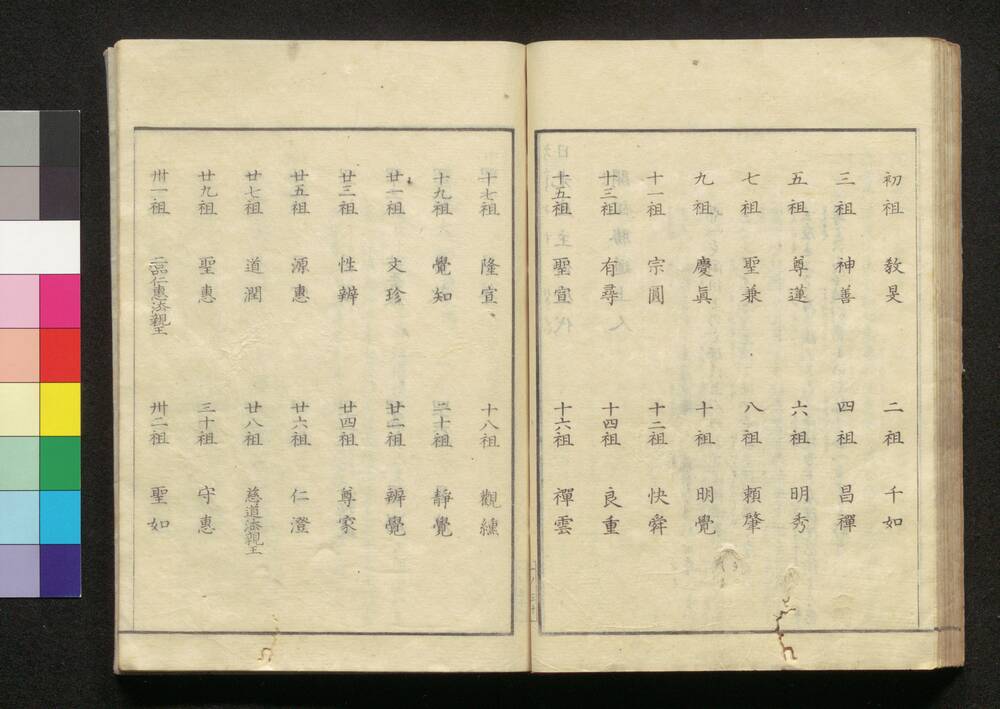 初祖 教旻 二祖 千如
三祖 神善 四祖 昌禪
五祖 尊蓮 六祖 明秀
七祖 聖兼 八祖 頼肇
九祖 慶眞 十祖 明覺
十一祖 宗圓 十二祖 快舜
十三祖 有尋 十四祖 良重
十五祖 聖宣 十六祖 禪雲
十七祖 隆宣 十八祖 觀纁
十九祖 覺知 二十祖 靜覺
廿一祖 文珍 廿二祖 辨覺
廿三祖 性辨 廿四祖 尊家
廿五祖 源惠 廿六祖 仁澄
廿七祖 道潤 廿八祖 慈道法親王
廿九祖 聖惠 三十祖 守惠
卅一祖 二品仁惠法親王 卅二祖 聖如